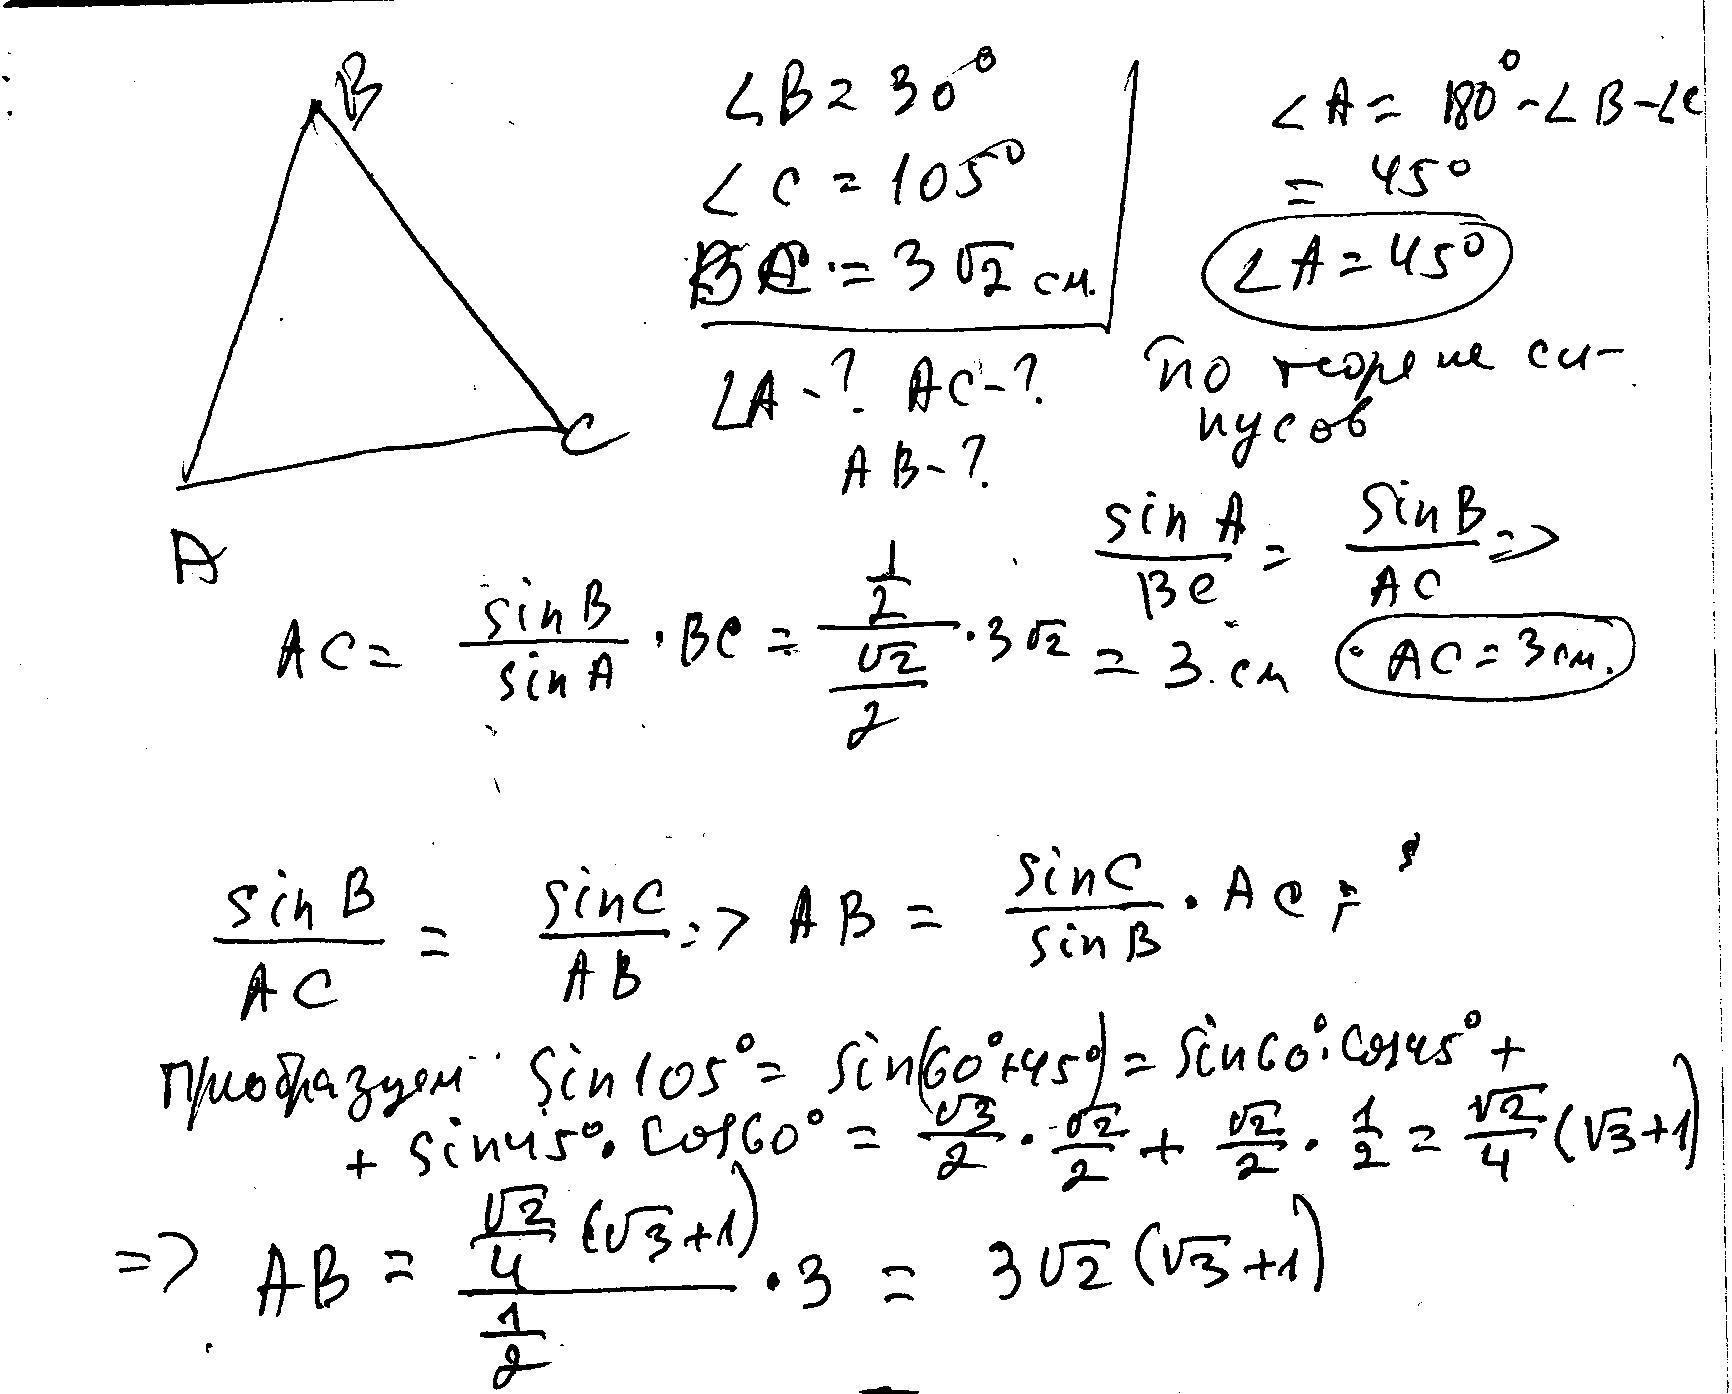 B
∠B = 30°
∠C = 105°
BC = 3√2 см.
∠A = 180° - ∠B - ∠C
= 45°
∠A = 45°
A
C
∠A - ? AC - ?
AB - ?
По теореме си-
нусов
sin A / BC = sin B / AC =>
AC = sin B / sin A · BC = (1/2) / (√2/2) · 3√2 = 3 см
AC = 3 см.
sin B / AC = sin C / AB => AB = sin C / sin B · AC =
Приобразуем sin 105° = sin(60°+45°) = sin 60° · cos 45° +
+ sin 45° · cos 60° = √3/2 · √2/2 + √2/2 · 1/2 = √2/4 (√3+1)
=> AB = (√2/4 (√3+1)) / (1/2) · 3 = 3√2 (√3+1)